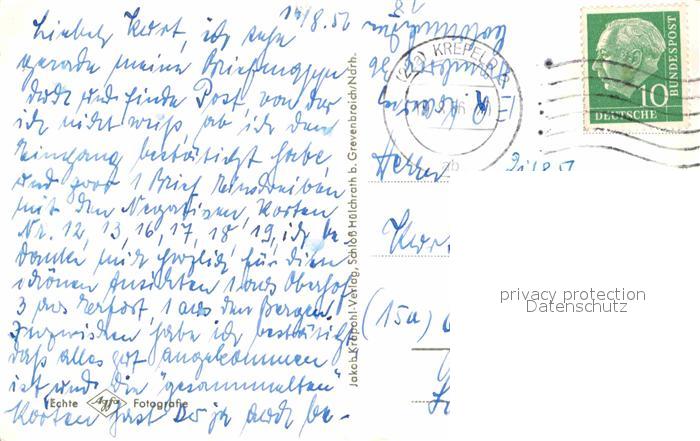 14/8.56
Lieber Kurt, ich sehe
gerade meine Briefmappe
durch und finde Post, von der
ich nicht weiß, ob ich den
Eingang bestätigt habe,
und zwar 1 Brief Einschreiben
mit den Negativen, Karten
Nr. 12, 13, 16, 17, 18, 19, ich be-
danke mich herzlich für die
schönen Ansichten 1 aus Oberhof
3 aus Erfurt, 1 aus den Bergen.
Inzwischen habe ich bestätigt
daß alles gut angekommen
ist und die "gesammelten"
Karten hast Du ja auch be-
Echte Agfa Fotografie
Jakob Krapohl-Verlag, Schloß Hülchrath b. Grevenbroich/Ndrh.
KREFELD
DEUTSCHE
BUNDESPOST
10
Herrn
21/8.56
Kur
(15a)
privacy protection
Datenschutz